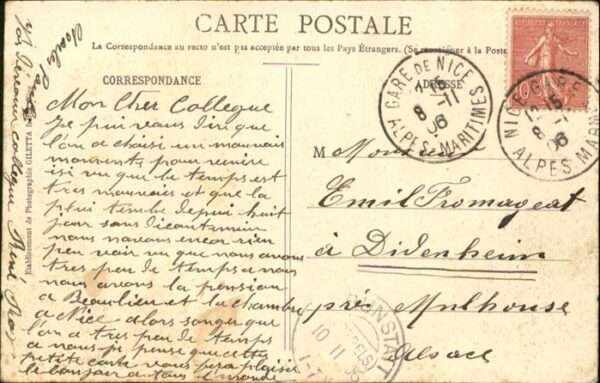 CARTE POSTALE
La Correspondance au recto n'est pas acceptée par tous les Pays Étrangers. (Se renseigner à la Poste
CORRESPONDANCE
ADRESSE
Mon cher Collegue
je puis vous dire que
l'on a choisi un mauvais
moments pour venire
isi vu que le temps est
tres mauvais et que la
plui tembe depui huit
jour sans
nous navons encor rien
peu voir vu que nous avons
tres peu de temps a nous
nous avons la pension
a Beaulieu et la chambre
a Nice alors songer que
l'on a tres peu de temps
a nous je pense que cettes
petite carte vous fera plaisir
le bonjour a tous l monde
M Monsieur
Emil Fromageat
à Didenheim
près Mulhouse
Alsace
GARE DE NICE
8 -11
06
ALPES-MARITIMES
NICE-GARE
8 -11
06
ALPES MARIT
10
DORNSTADT
10 11 06
Etablissements de Photographie GILETTA
collegue René